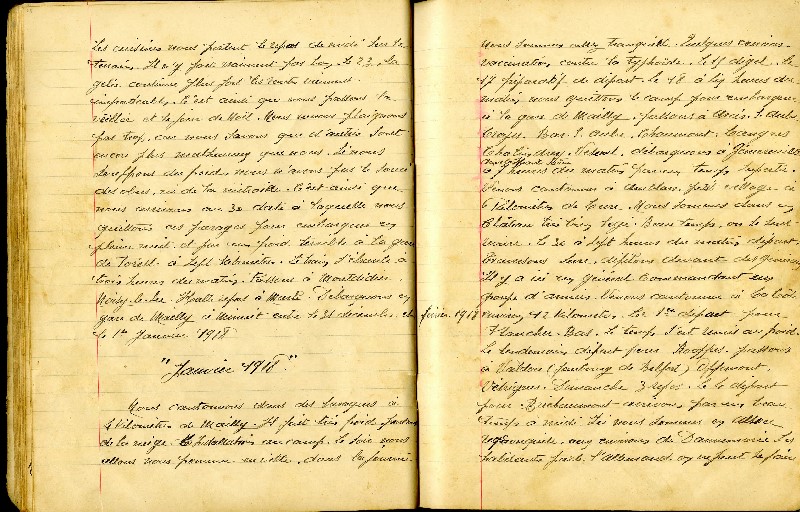 Les cuisiniers nous portent le repas de midi sur le
terrain. Il n'y fait vraiment pas bon, le 23. La
gelée continue plus fort les routes sont
impraticables. C'est ainsi que nous passons la
veillée et le jour de Noël. Nous ne nous plaignons
pas trop, car nous savons que d'autres sont
encore plus malheureux que nous. Si nous
souffrons du froid, nous n'avons pas le souci
des obus, ni de la mitraille. C'est ainsi que
nous arrivons au 30 date à laquelle nous
quittons ces parages pour embarquer en
pleine nuit et par un froid terrible à la gare
de à sept kilomètres. Le train s'ébranle à
trois heures du matin. Passons à Montdidier
Noisy-le-Sec. Halte repas à Debarquons en
gare de Mailly à minuit entre le 31 décembre et
le 1er Janvier 1918
"Janvier 1918"
Nous cantonnons dans des baraques à
4 kilomètres de Mailly. Il fait très froid
de la neige. au camp. Le soir nous
allons nous promener en ville, dans la journée
nous sommes assez tranquille. Quelques
vaccination contre la typhoïde. le 15 Le
17 préparatif de départ. Le 18 à 4 heures du
matin nous quittons le camp pour embarquer
à la gare de Mailly. Passons à Arcis-S-Aube
Troyes. Bar-S-Aube. Chaumont. Langres
Chalindrey. Vesoul, débarquons à
à 7 heures du matin par un temps superbe.
Venons cantonner à petit village à
6 kilomètres de Lure. Nous sommes dans un
château très bien logé. Beau temps, on se
Le 30 à sept heures du matin départ.
Traversons Lure, défilons devant des généraux
Il y a ici un général commandant un
groupe d'armées. Venons cantonner à La Côte
environ 12 kilomètres. Le 1er départ pour
février 1918
Plancher-Bas. Le temps s'est remis au froid.
Le lendemain départ pour Roppe. passons
à Valdoie (faubourg de Belfort) Offemont,
Vétrigne. Dimanche 3 repos. Le 4 départ
pour Brechaumont. arrivons par un beau
temps à midi. Ici nous sommes en Alsace
reconquise, aux environs de Dannemarie. Les
habitants parle l'Allemand on ne peut se faire